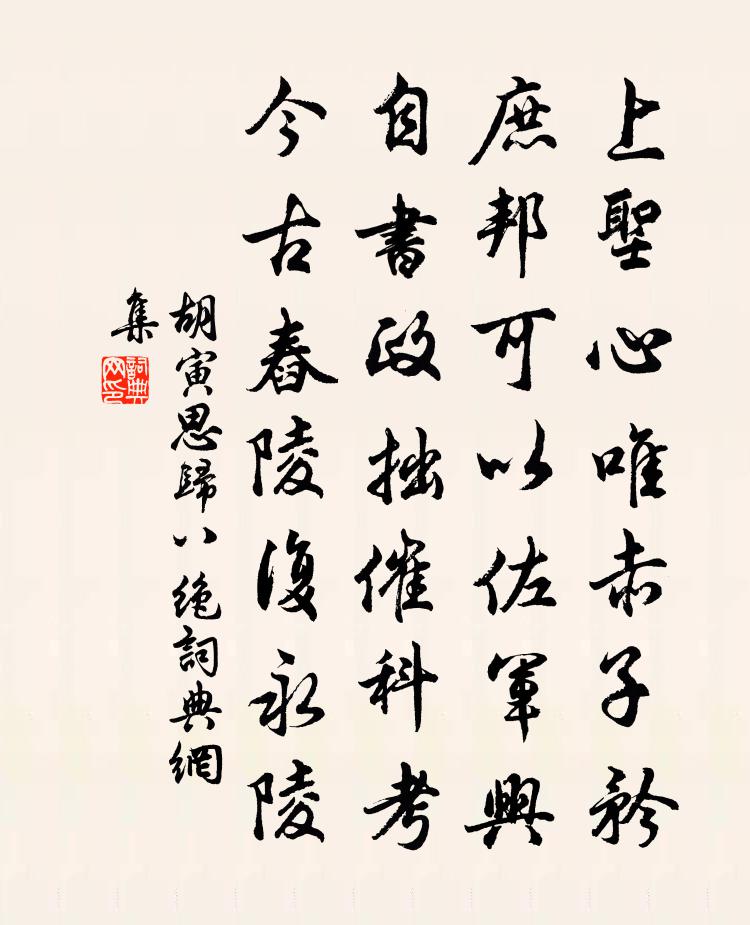 上聖心唯赤子矜
庶邦可以佐軍興
自書政拙催科考
今古舂陵復永陵
胡寅思歸八絶詞典網
集
詞典
网印